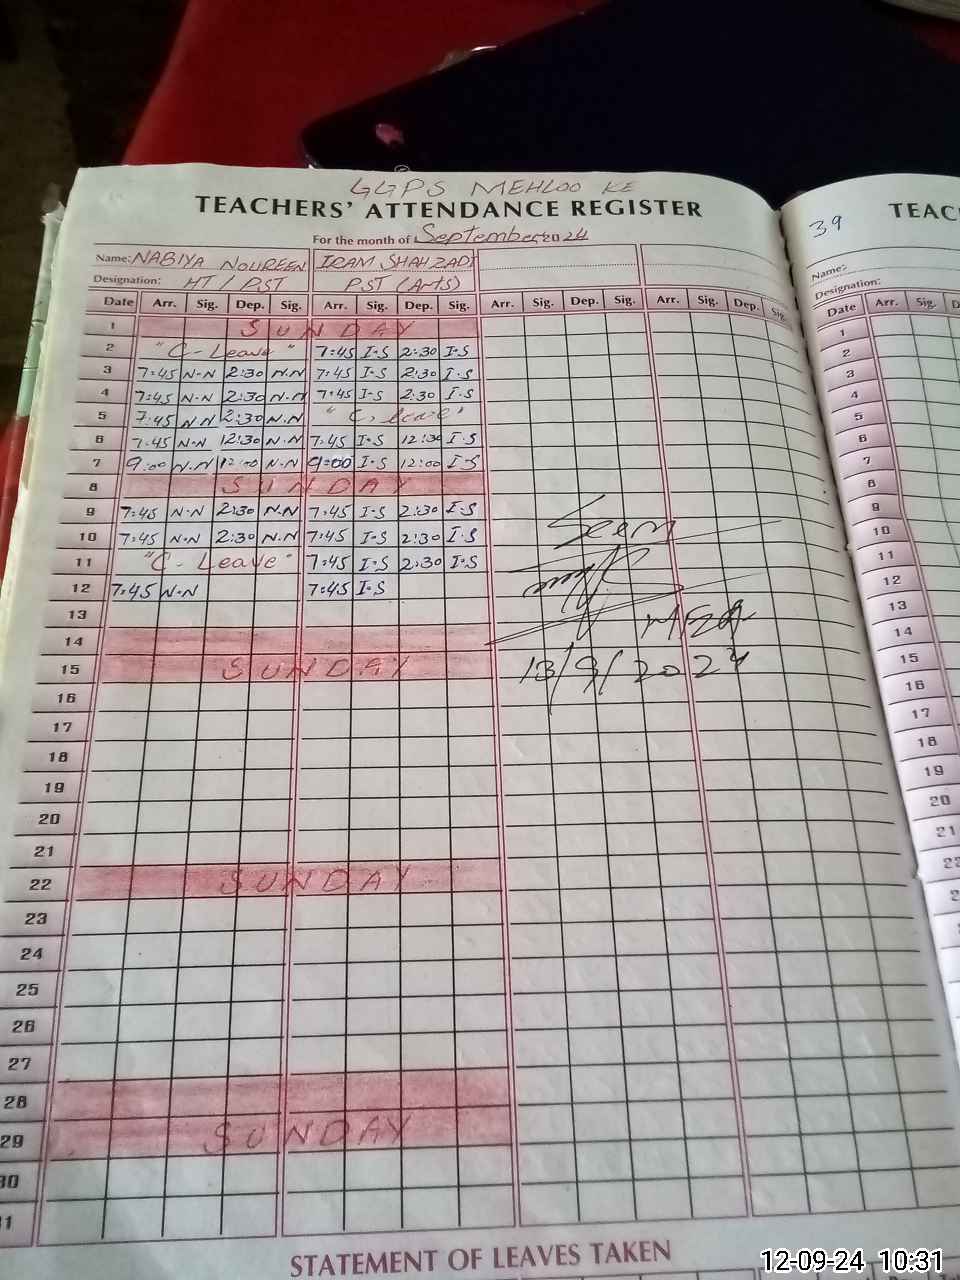 GGPS MEHLOO KE
TEACHERS' ATTENDANCE REGISTER
For the month of September 2024
Name: NABIYA NOUREEN IRAM SHAHZADI
Designation: HT / PST PST (Arts)
Date Arr. Sig. Dep. Sig. Arr. Sig. Dep. Sig. Arr. Sig. Dep. Sig. Arr. Sig. Dep. Sig.
1 SUNDAY
2 "C-Leave" 7:45 I-S 2:30 I-S
3 7:45 N-N 2:30 N.N 7:45 I-S 2:30 I.S
4 7:45 N-N 2:30 N.N 7:45 I-S 2:30 I.S
5 7:45 N N 2:30 N.N "C, leave"
6 7.45 N-N 12:30 N.N 7:45 I-S 12:30 I.S
7 9:00 N.N 12:00 N-N 9:00 I-S 12:00 I-S
8 SUNDAY
9 7:45 N-N 2:30 N.N 7:45 I.S 2:30 I.S
10 7:45 N-N 2:30 N.N 7:45 I-S 2:30 I.S
11 "C-Leave" 7:45 I-S 2:30 I-S
12 7:45 N-N 7:45 I-S
13
14
15 SUNDAY
16
17
18
19
20
21
22 SUNDAY
23
24
25
26
27
28
29 SUNDAY
30
31
Seen
MEA
13/9/2024
STATEMENT OF LEAVES TAKEN
39
TEAC
Name:
Designation:
Date Arr. Sig. D
1
2
3
4
5
6
7
8
9
10
11
12
13
14
15
16
17
18
19
20
21
22
2
2
12-09-24 10:31